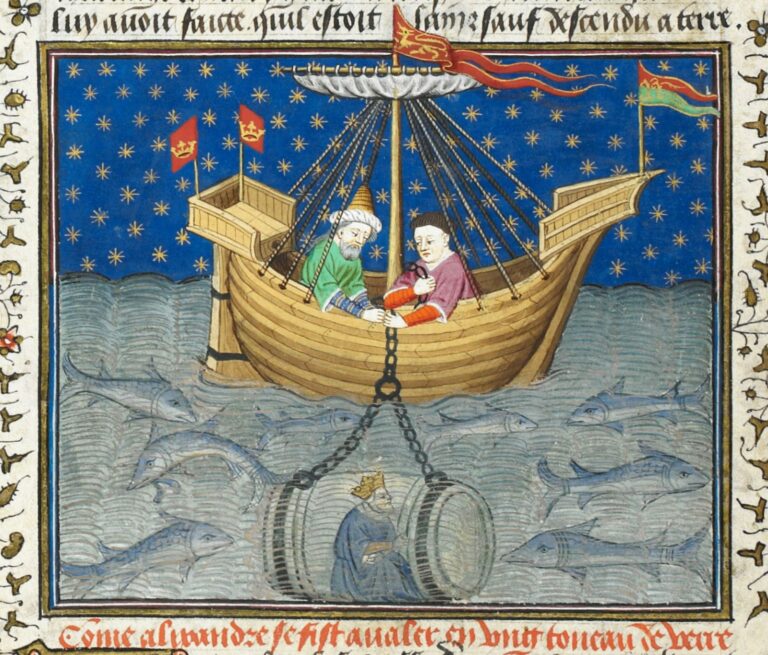 luy auoit faicte. quil estoit sain ⁊ sauf descendu a terre.
Cōme alixandre se fist aualer en vng toneau de verre